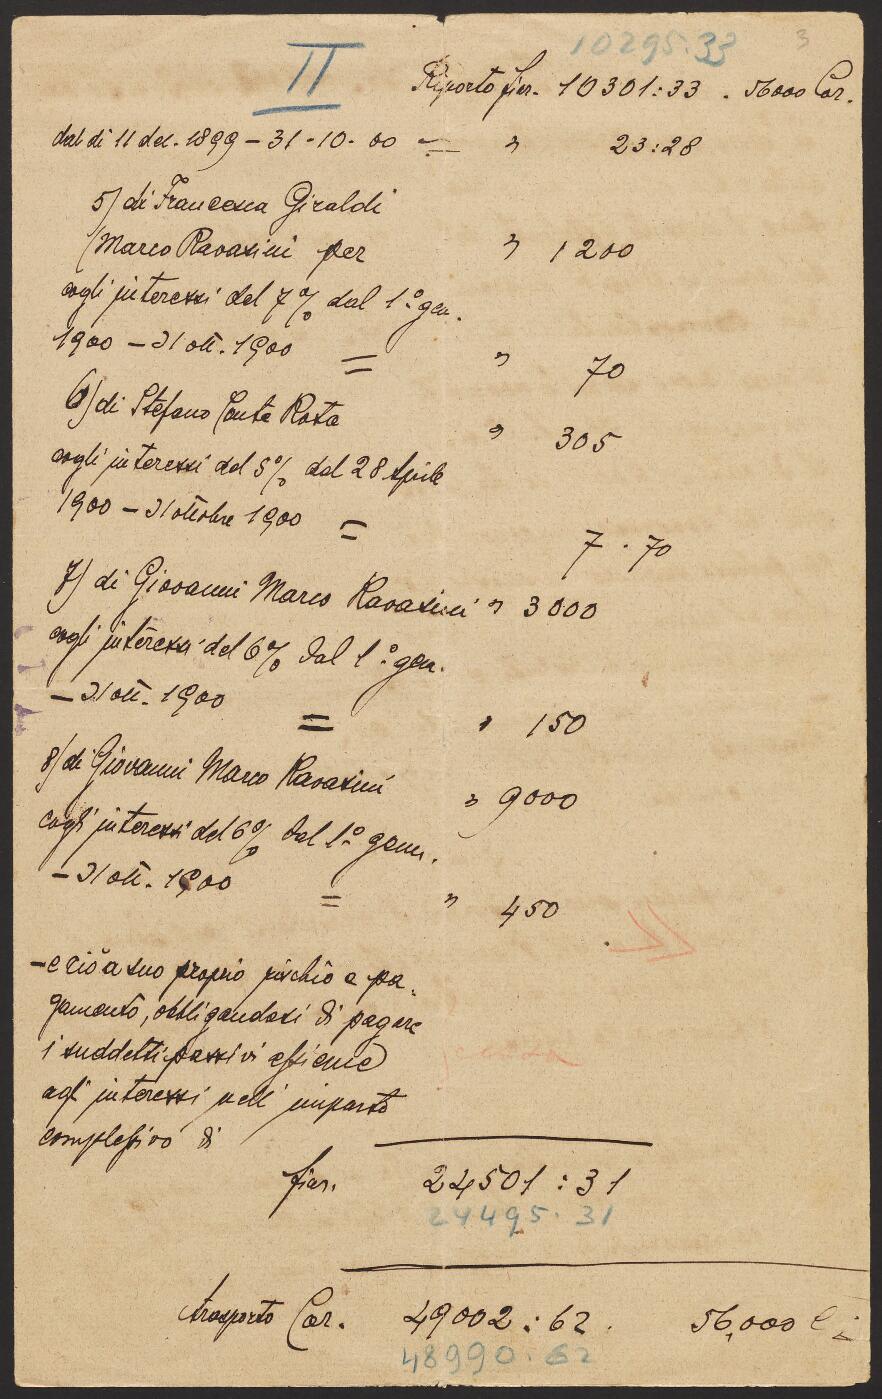 10295.33 3
II
Riporto fior. 10301:33 . 56000 Cor.
dal di 11 dec. 1899 – 31-10-00 = " 23:28
5) di Francesca Giraldi
Marco Ravasini per " 1200
cogli interessi del 7% dal 1.º gen.
1900 – 31 ott. 1900 = " 70
6) di Stefano Conte Rota " 305
cogli interessi del 5% dal 28 Aprile
1900 – 31 ottobre 1900 =
7.70
7) di Giovanni Marco Ravasini " 3000
cogli interessi del 6% dal 1.º gen.
– 31 ott. 1900 = " 150
8) di Giovanni Marco Ravasini " 9000
cogli interessi del 6% dal 1.º genn.
– 31 ott. 1900 = " 450
– e ciò a suo proprio rischio e pa-
gamento, obbligandosi di pagare
i suddetti passivi assieme
agli interessi nell' importo
complessivo di
fior. 24501:31
24495.31
trasporto Cor. 49002:62. 56,000
48990.62